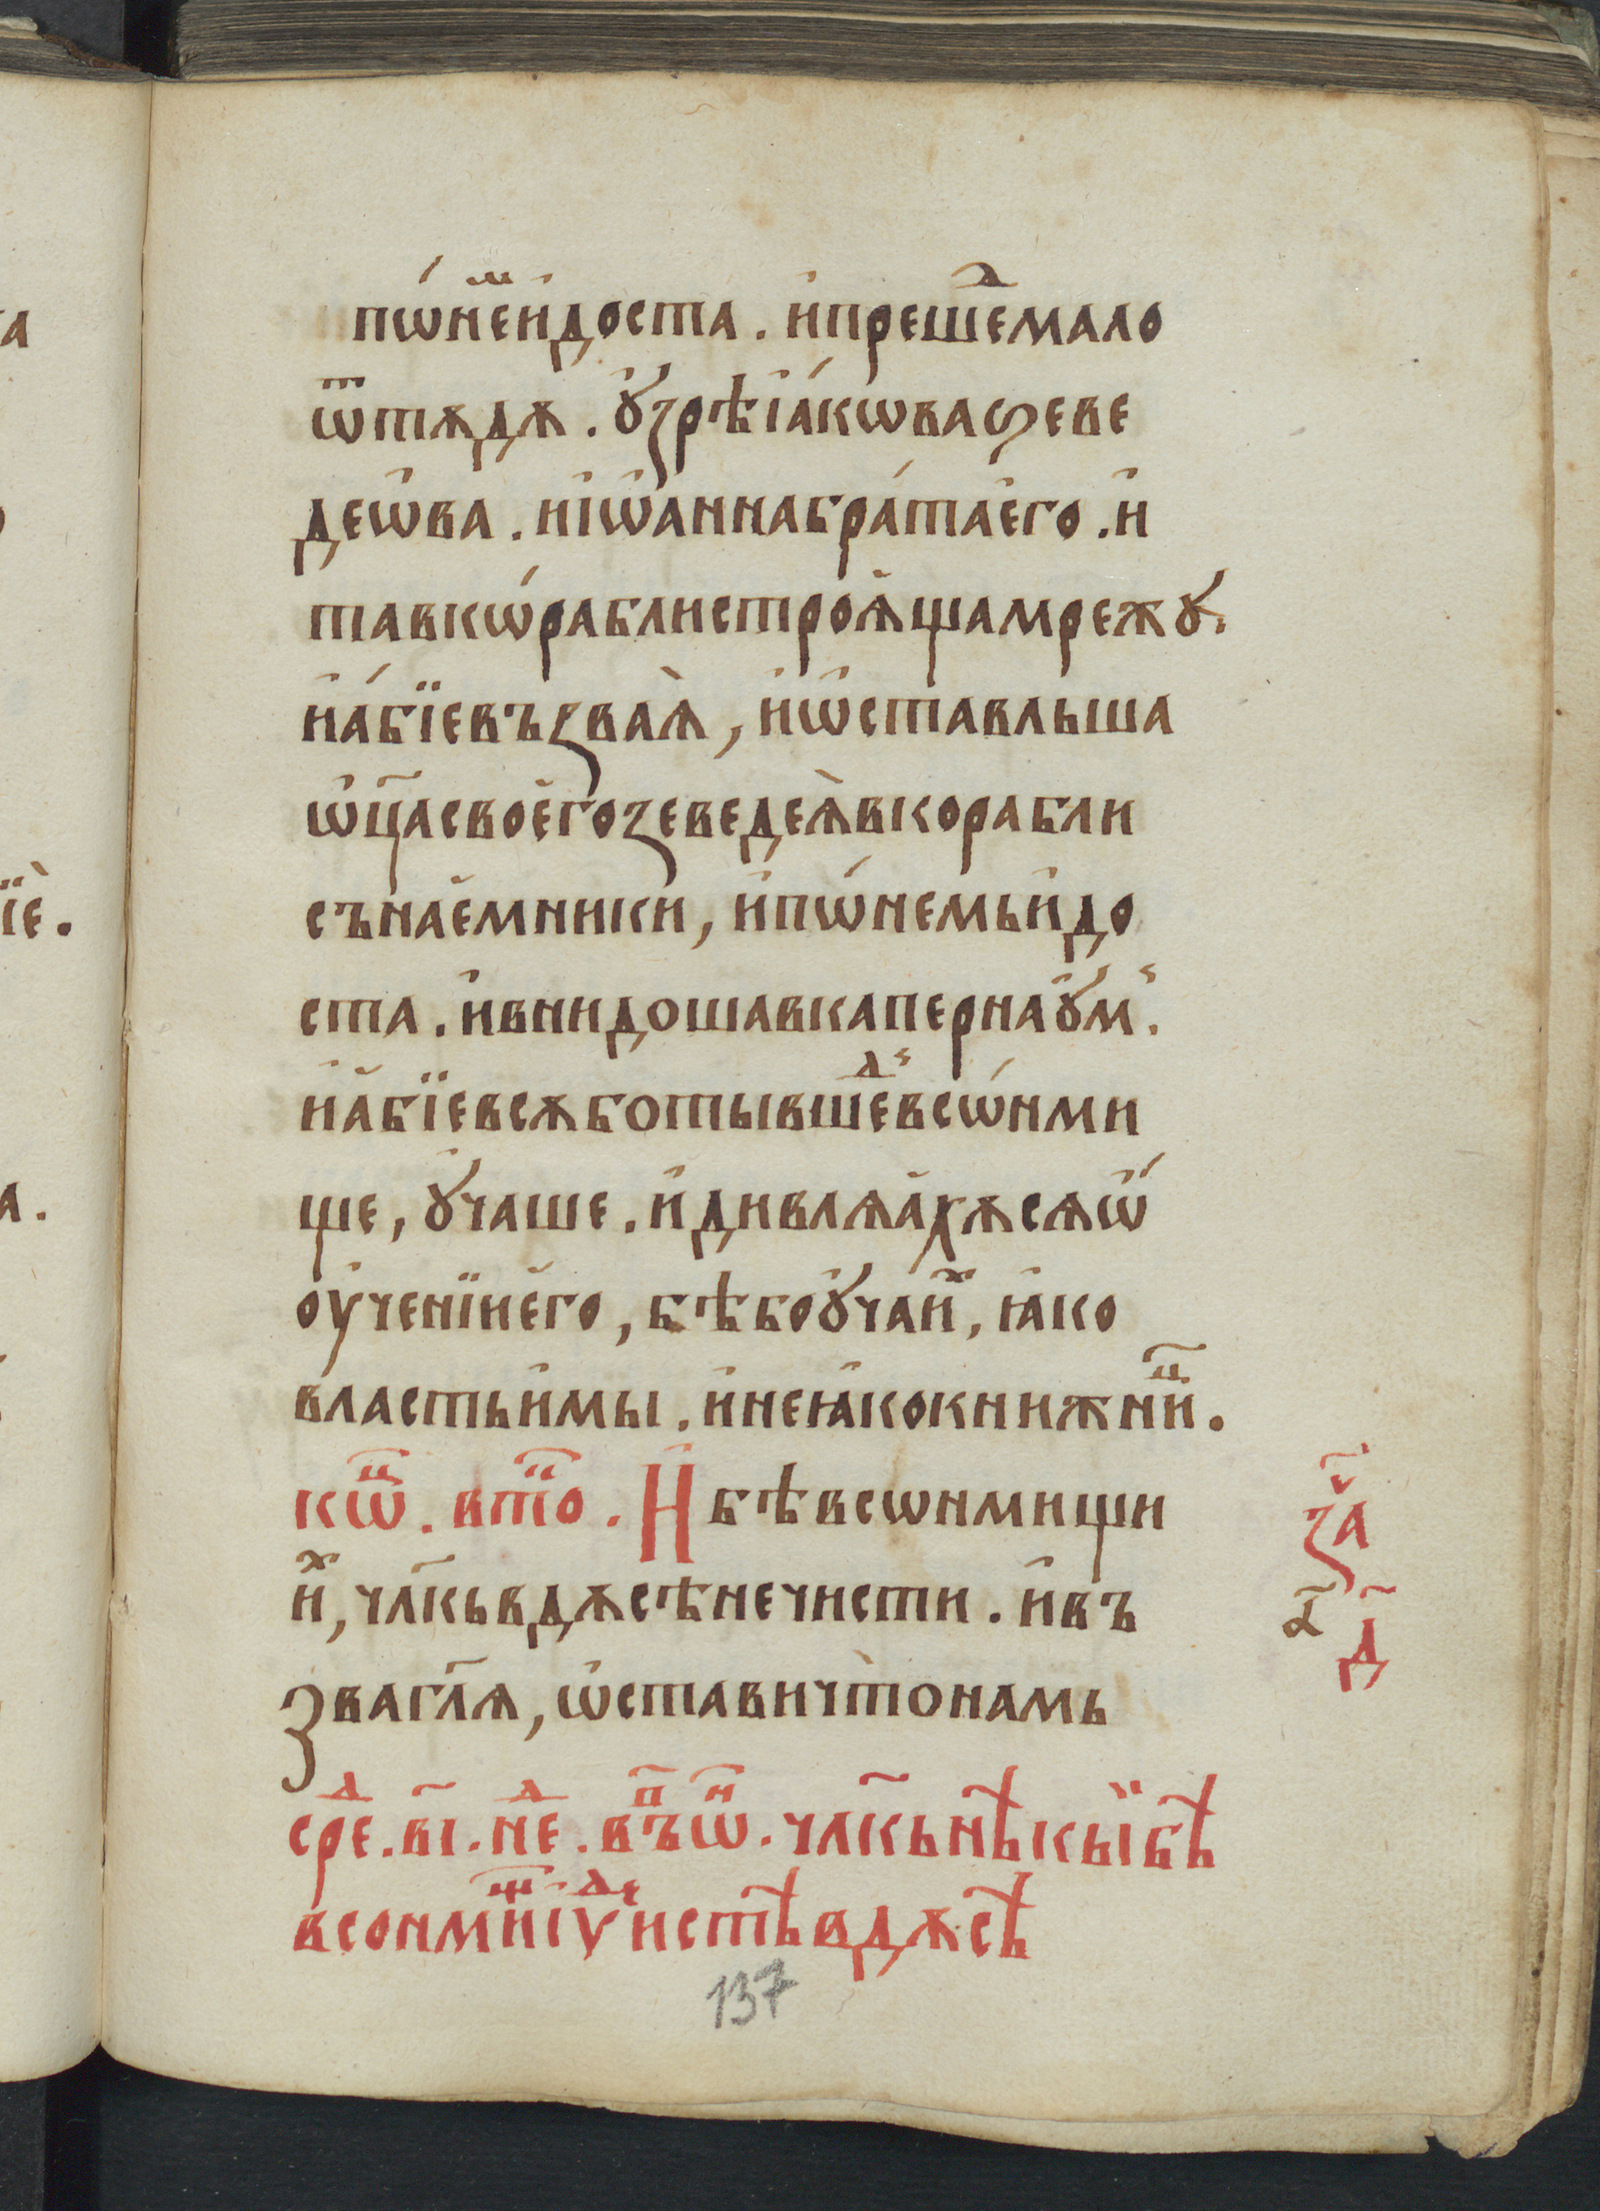 пѡ́не҆ⷨи҆доста . и҆прешеⷣмало
ѿтѫдѫ . ᲂу҆зрѣі҆а́кѡваѕеве
деѡ҆ва . иі҆ѡ҆аннабра́тае҆го . и҆
тавкѡ́раблистроꙗ҆щамрежꙋ.
и҆а́бїевъзваѧ̀ , иѡ҆ставльша
ѡ҆ц҃асвое҆гозеведеѧ҆вкорабли
сънае҆мники , и҆пѡ́немьи҆до
ста . и҆внидошавкапернаꙋ҆́м .
и҆а҆бїевсѫботывшеⷣвсѡ́нми
ще , ꙋ҆чаше . и҆дивлѧа҆хѫсѧѡ҆́
оу҆ченїие҆го , бѣбоꙋ҆чаи҆ⷯ , ꙗ҆ко
властьи҆мы . и҆неꙗ҆кокнижниⷰ҇и .
кѡⷰ҇ . втоⷬ҇ . И҆ бѣвсѡнмищи
и҆ⷯ , чл҃кьвдѫсѣнечисти . и҆въ
звагл҃ѧ , ѡ҆ставичто̀намь
среⷣ . в҃і . неⷣ . въⷫ҇ѡⷩ҇ . чл҃кьнѣкыїбѣ
всонмиⷳ҇і҆ѵⷣистѣвдѫсѣ
за҃ⷱ
а҃ д҃
137